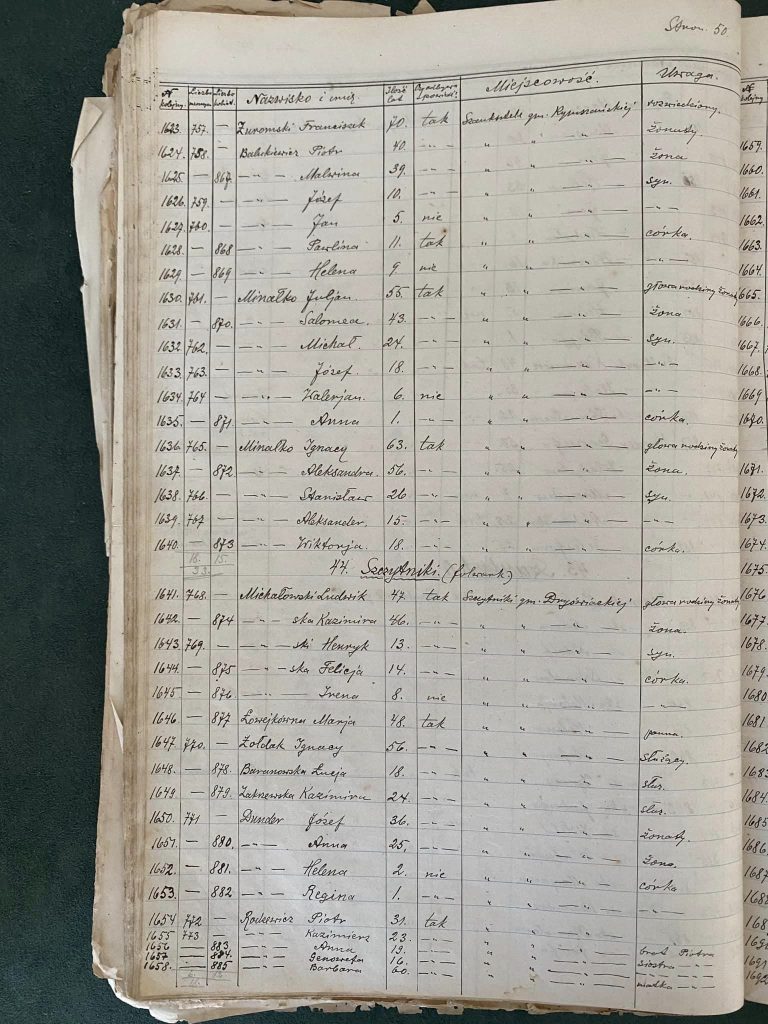 Stron. 50
№ kolejny. Liczba męzczyzn. Liczba kobiet. Nazwisko i imię Ilość lat Miejscowość. Uwaga.
1623. 757. — Żuromski Franciszek 70. tak Szunkuteli gm. Rymszańskiej rozwiedziony.
1624. 758. — Bałukiewicz Piotr 40. — " — " " — " — żonaty.
1625. — 867. — " — Malwina 39. — " — " " — " — żona
1626. 759. — — " — Józef 10. — " — " " — " — syn.
1629. 760. — — " — Jan 5. nie " " — " — — " —
1628. — 868 — " — Pawlina 11. tak " " — " — córka.
1629. — 869 — " — Helena 9. nie " " — " — — " —
1630. 761. — Minałko Juljan. 55. tak " " — " — głowa rodziny żonaty
1631. — 870. — " — Salomea. 43. — " — " " — " — żona
1632 762. — — " — Michał. 24. — " — " " — " — syn.
1633. 763. — — " — Józef. 18. — " — " " — " — — " —
1634. 764 — — " — Walerjan. 6. nie " " — " — — " —
1635. — 871. — " — Anna 1. — " — " " — " — córka.
1636. 765. — Minałko Ignacy 63. tak " " — " — głowa rodziny żonaty
1637. — 872. — " — Aleksandra. 56. — " — " " — " — żona.
1638. 766. — — " — Stanisław 26 — " — " " — " — syn.
1639. 767 — — " — Aleksander. 15. — " — " " — " — — " —
1640. — 873 — " — Wiktorja. 18. — " — " " — " — córka.
18. 15.
33.
47. Szczytniki. (folwark)
1641. 768. — Michałowski Ludwik 47. tak Szczytniki gm. Dryświackiej głowa rodziny żonaty
1642. — 874 — " — ska Kazimira 46. — " — " " — " — żona.
1643. 769. — — " — ski Henryk 13. — " — " " — " — syn.
1644. — 875 — " — ska Felicja 14. — " — " " — " — córka.
1645 — 876. — " — Irena 8. nie " " — " — — " —
1646. — 877 Łowejkówna Marja 48. tak " " — " — panna.
1647. 770. — Żołdak Ignacy 56. — " — " " — " — służący.
1648. — 878. Baranowska Łucja 18. — " — " " — " — służ.
1649. — 879. Kazimira 24. — " — " " — " — służ.
1650. 771 — Dunder Józef 36. — " — " " — " — żonaty.
1651. — 880. — " — Anna 25. — " — " " — " — żona.
1652. — 881. — " — Helena 2. nie " " — " — córka
1653. — 882 — " — Regina 1. — " — " " — " — — " —
1654 772 — Rodziewicz Piotr 31. tak " " — " —
1655 773 — — " — Kazimierz 23. — " — " " — " — brat Piotra
1656 — 883. — " — Anna 19. — " — " " — " — siostra — " —
1657 — 884. — " — Genowefa 16. — " — " " — " — — " —
1658. — 885 — " — Barbara 60. — " — " " — " — matka — " —
№ kolejny
1659.
1660.
1661.
1662.
1663.
1664.
1665.
1666.
1667.
1668.
1669
1670.
1671.
1672.
1673.
1674.
1675.
1676
1677.
1678.
1679.
1680.
1681
1682
1683
1684.
1685
1686.
1687
1688
1691
1692